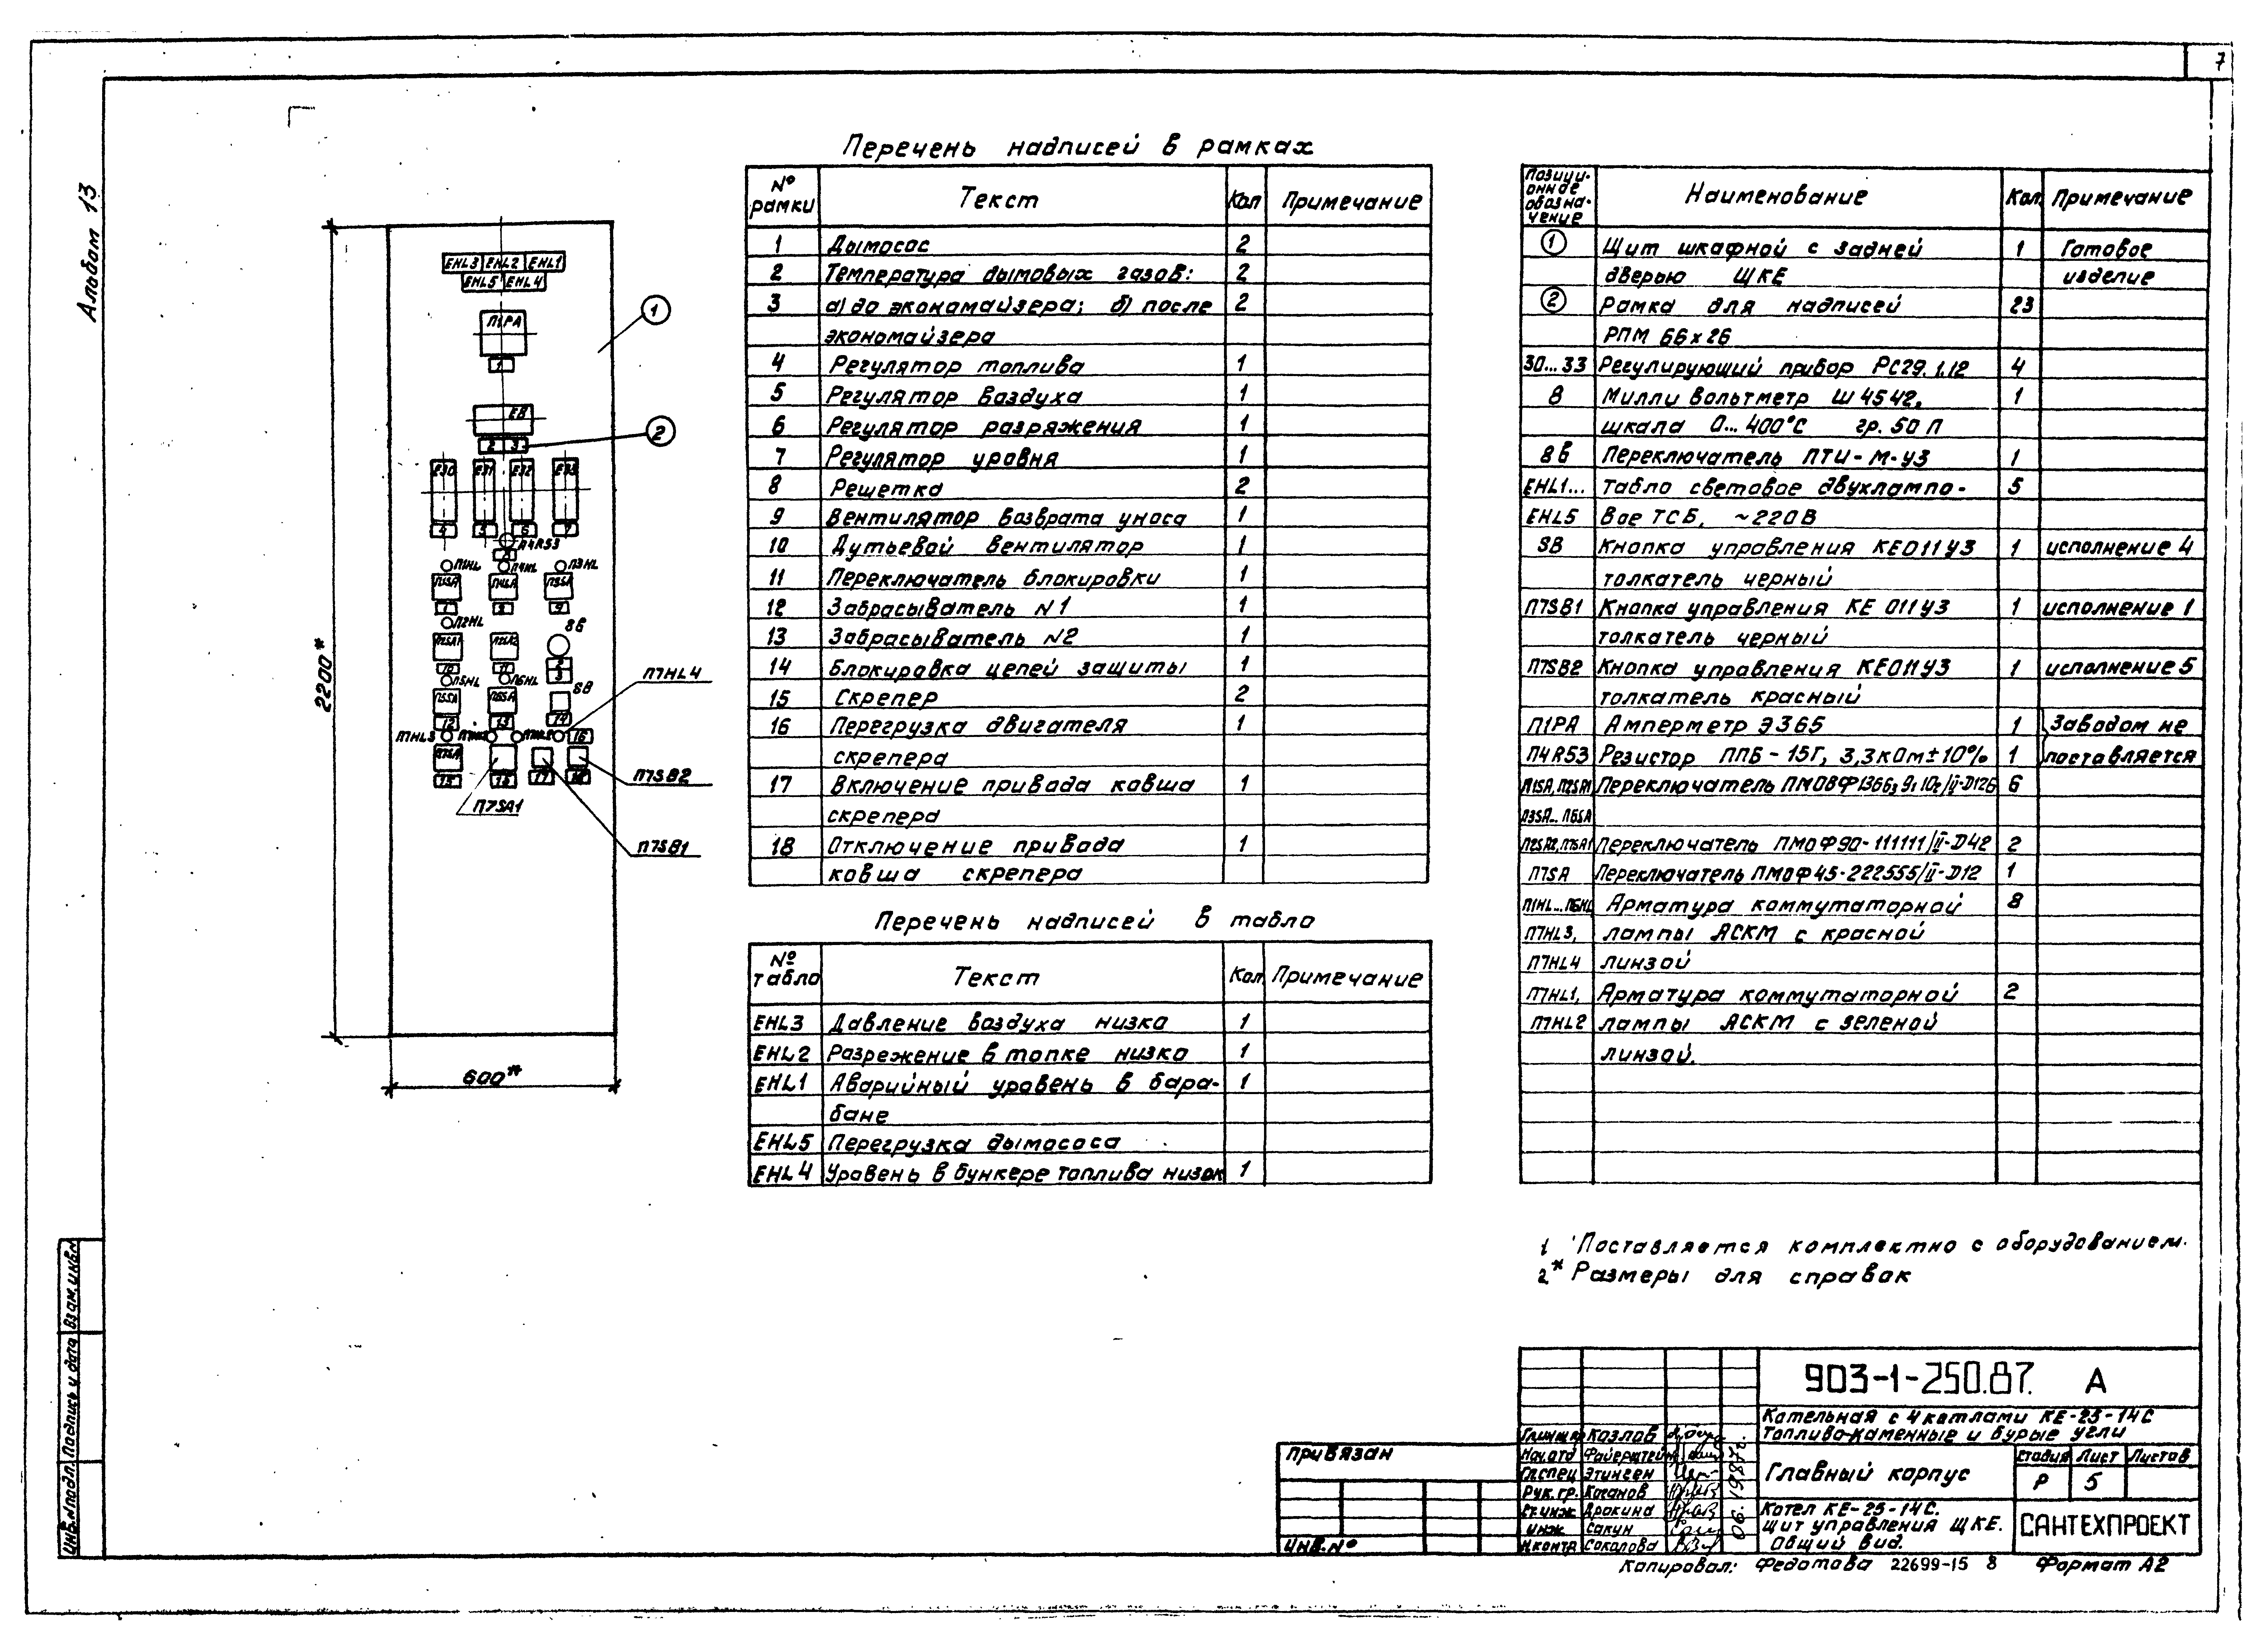 7
Альбом 13
EHL3 EHL2 EHL1
EHL5 EHL4
П1РА
1
1
E8
2 3
2
E30 E31 E32 E33
4 5 6 7
П4RS3
8
П1HL П4HL П3HL
П1SA П4SA П3SA
П2HL
8в
П2SA1 П2SA2
10 11
2
3
П5HL П6HL
П5SA П6SA
SB
12 13 14
П7HL4
П7HL3
16
П7SA
15
П7SB2
П7SA1
П7SB1
2200*
600*
Перечень надписей в рамках
№ рамки Текст Кол Примечание
1 Дымосос 2
2 Температура дымовых газов: 2
3 а) до экономайзера; б) после 2
экономайзера
4 Регулятор топлива 1
5 Регулятор воздуха 1
6 Регулятор разряжения 1
7 Регулятор уровня 1
8 Решетка 2
9 Вентилятор возврата уноса 1
10 Дутьевой вентилятор 1
11 Переключатель блокировки 1
12 Забрасыватель N1 1
13 Забрасыватель N2 1
14 Блокировка цепей защиты 1
15 Скрепер 2
16 Перегрузка двигателя 1
скрепера
17 Включение привода ковша 1
скрепера
18 Отключение привода 1
ковша скрепера
Перечень надписей в табло
№ табло Текст Кол Примечание
EHL3 Давление воздуха низко 1
EHL2 Разрежение в топке низко 1
EHL1 Аварийный уровень в бара- 1
бане
EHL5 Перегрузка дымососа
EHL4 Уровень в бункере топлива низок 1
Позици-онное обозна-чение Наименование Кол. Примечание
1 Щит шкафной с задней 1 Готовое
дверью ЩКЕ изделие
2 Рамка для надписей 23
РПМ 66х26
30...33 Регулирующий прибор РС29.1.12 4
8 Милливольтметр Ш4542, 1
шкала 0...400°С гр.50П
8в Переключатель ПТИ-М-У3 1
EHL1... Табло световое двухлампо- 5
EHL5 вое ТСБ, ~220В
SB Кнопка управления КЕ011У3 1 исполнение 4
толкатель черный
П7SB1 Кнопка управления КЕ 011У3 1 исполнение 1
толкатель черный
П7SB2 Кнопка управления КЕ011У3 1 исполнение 5
толкатель красный
П1РА Амперметр Э365 1 Заводом не
П4RS3 Резистор ППБ-15Г, 3,3кОм±10% 1 поставляется
П1SA, П2SA1 Переключатель 6
П3SA...П6SA
П2SA2, П7SA1 Переключатель ПМОФ90-111111/II-Д42 2
П7SA Переключатель ПМОФ45-222555/II-Д12 1
П1HL...П6HL Арматура коммутаторной 8
П7HL3, лампы АСКМ с красной
П7HL4 линзой
П7HL1, Арматура коммутаторной 2
П7HL2 лампы АСКМ с зеленой
линзой.
1 Поставляется комплектно с оборудованием.
2* Размеры для справок
903-1-250.87. А
Котельная с 4 котлами КЕ-25-14С
Топливо-каменные и бурые угли
Козлов
Нач.отд Файерштейн
Гл.спец Этинген
Рук.гр. Коганов
Ст.инж Дрокина
инж Сакун
Н.контр Соколова
06.1987г.
Главный корпус
Стадия Лист Листов
Р 5
Котел КЕ-25-14С.
Щит управления ЩКЕ.
Общий вид.
САНТЕХПРОЕКТ
Привязан
Инв.№
Копировал: Федотова 22699-15 8 Формат А2
Инв.№подл. Подпись и дата Взам.инв.№